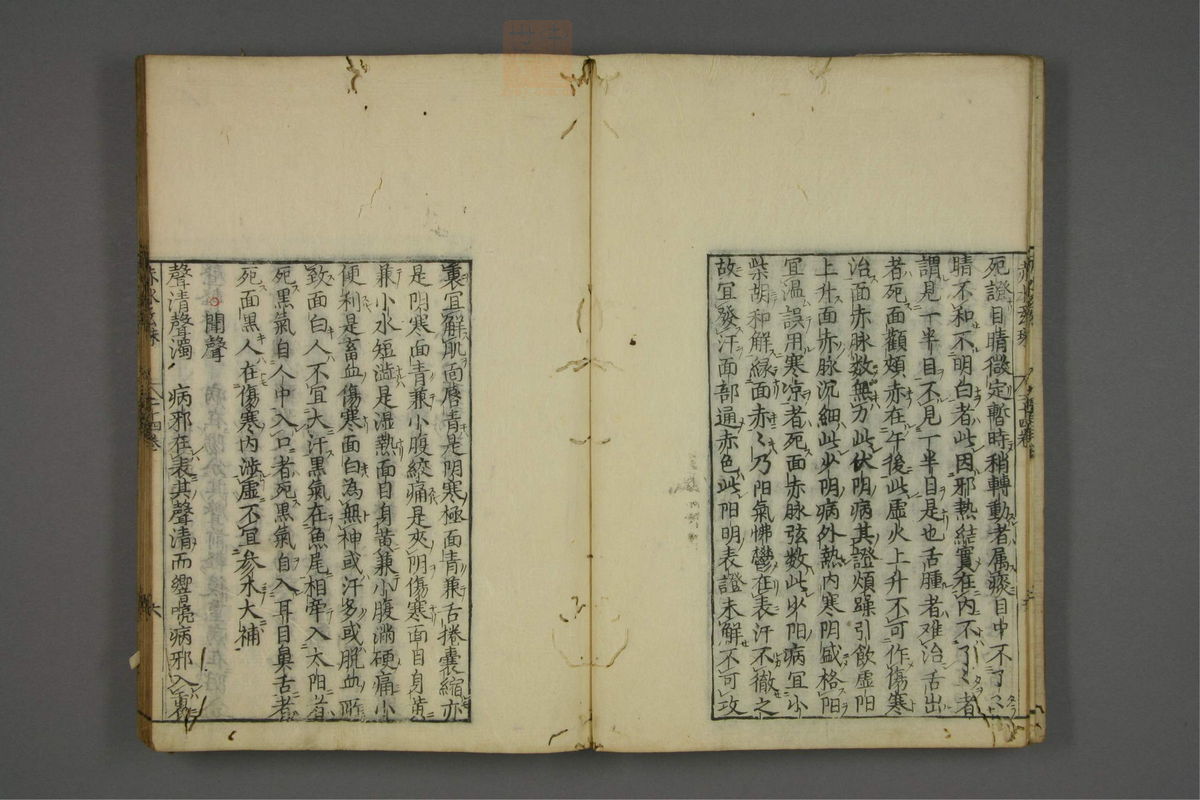 死證目睛微定暫時稍轉動者属痰目中不了〻
睛不和不明白者此因邪熱結實在内不了〻者
謂見一半目不見一半目是也舌腫者难治舌出
者死面顴頰赤在午後此虛火上升不可作傷寒
治面赤脉数無力此伏阴病其證煩躁引飲虛阳
上升面赤脉沉細此少阴病外熱内寒阴盛格阳
宜温誤用寒凉者死面赤脉弦数此少阳病宜小
柴胡和解緑面赤〻乃阳氣怫鬱在表汗不徹之
故宜發汗面部通赤色此阳明表證未解不可攻
裏宜解肌面唇青是阴寒極面青兼舌捲囊縮亦
是阴寒面青兼小腹絞痛是夾阴傷寒面目身黄
兼小水短澁是湿熱面目身黄兼小腹滿硬痛小
便利是畜血傷寒面白為無神或汗多或脱血所
致面白人不宜大汗黒氣在魚尾相牽入太阳者
死黒氣自人中入口者死黒氣自入耳目鼻舌者
死面黒人在傷寒内渉虛不宜参朮大補
聞聲
聲清聲濁 病邪在表其聲清而響喨病邪入裏